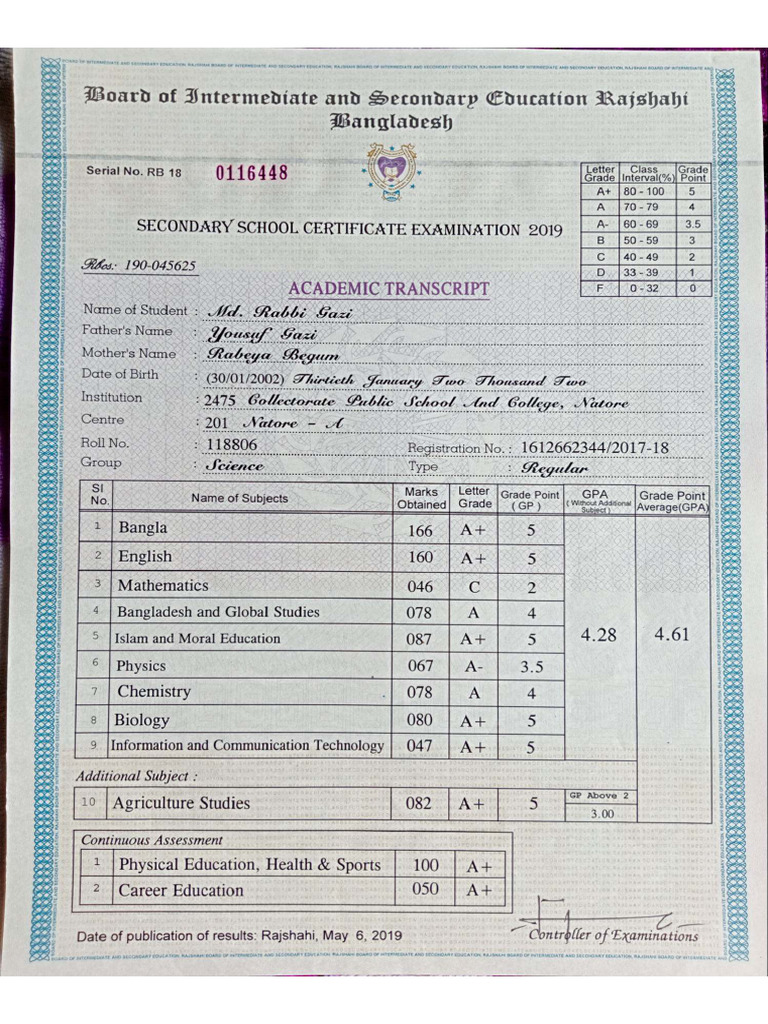 Board of Intermediate and Secondary Education Rajshahi
Bangladesh
Serial No. RB 18 0116448
Letter Grade Class Interval(%) Grade Point
A+ 80 - 100 5
A 70 - 79 4
A- 60 - 69 3.5
B 50 - 59 3
C 40 - 49 2
D 33 - 39 1
F 0 - 32 0
SECONDARY SCHOOL CERTIFICATE EXAMINATION 2019
Rbcs. 190-045625
ACADEMIC TRANSCRIPT
Name of Student : Md. Rabbi Gazi
Father's Name : Yousuf Gazi
Mother's Name : Rabeya Begum
Date of Birth : (30/01/2002) Thirtieth January Two Thousand Two
Institution : 2475 Collectorate Public School And College, Natore
Centre : 201 Natore - A
Roll No. : 118806 Registration No. : 1612662344/2017-18
Group : Science Type : Regular
Sl No. Name of Subjects Marks Obtained Letter Grade Grade Point ( GP ) GPA ( Without Additional Subject ) Grade Point Average(GPA)
1 Bangla 166 A+ 5
2 English 160 A+ 5
3 Mathematics 046 C 2
4 Bangladesh and Global Studies 078 A 4
5 Islam and Moral Education 087 A+ 5 4.28 4.61
6 Physics 067 A- 3.5
7 Chemistry 078 A 4
8 Biology 080 A+ 5
9 Information and Communication Technology 047 A+ 5
Additional Subject :
10 Agriculture Studies 082 A+ 5 GP Above 2 3.00
Continuous Assessment
1 Physical Education, Health & Sports 100 A+
2 Career Education 050 A+
Date of publication of results: Rajshahi, May 6, 2019
Controller of Examinations